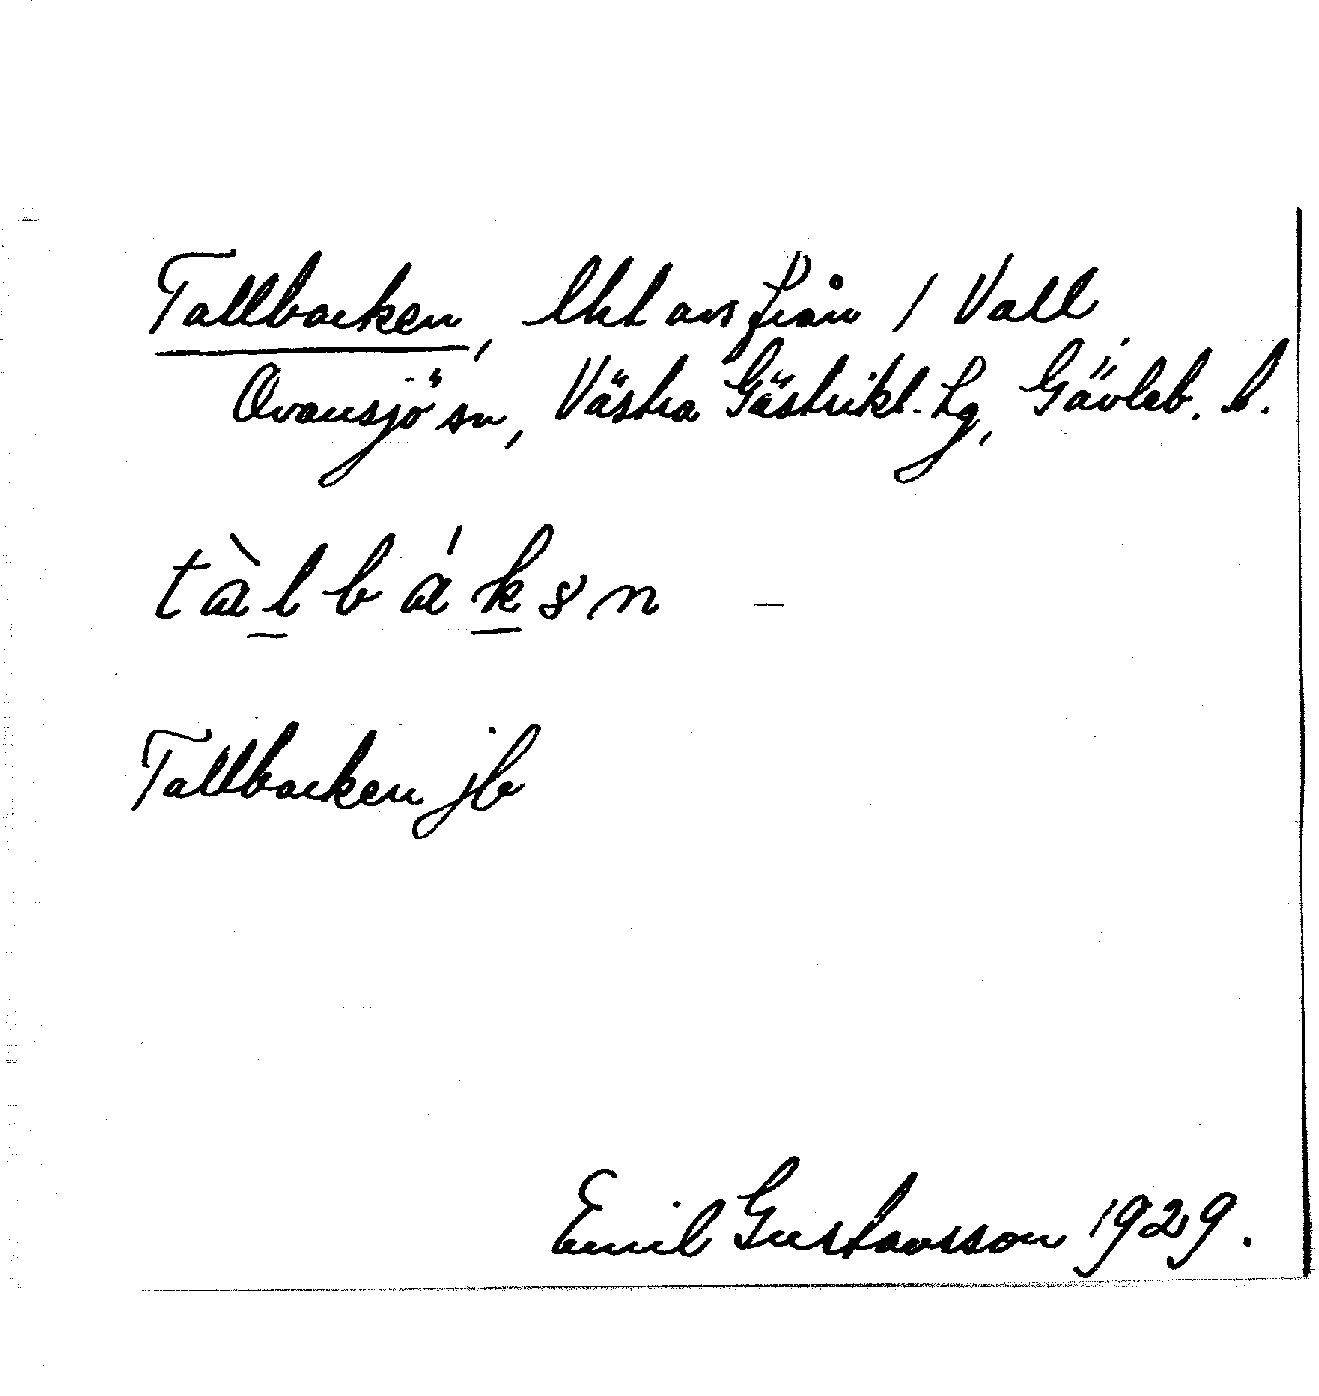 Tallbacken, lht avs från 1 Vall
Ovansjö sn, Västra Gästrikl. tg, Gävleb. l.
tàl̲bák̲ən –
Tallbacken jb
Emil Gustavsson 1929.